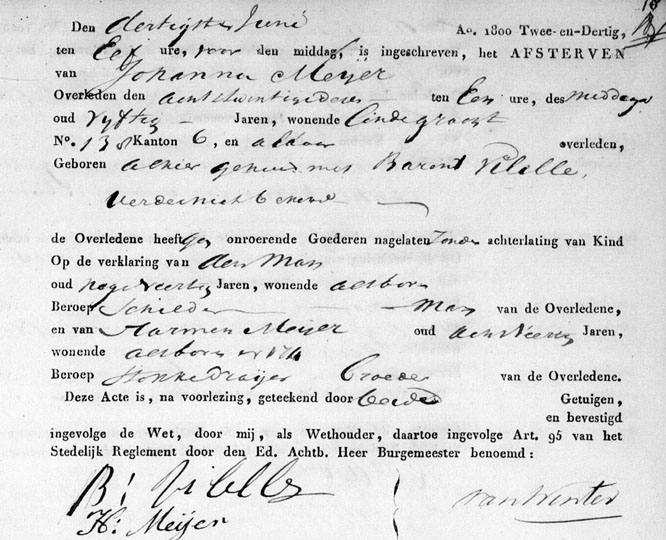 Den dertigste Junÿ Ao. 1800 Twee-en-Dertig,
ten Elf ure, voor den middag, is ingeschreven, het AFSTERVEN
van Johanna Meÿer
Overleden den achtentwintigdezer ten Een ure, des middags
oud vyftig Jaren, wonende Lindegracht
No. 138 Kanton 6, en aldaar overleden,
Geboren alhier gehuwd met Barend Vilelle,
verder niet bekend
de Overledene heeft gn onroerende Goederen nagelaten Zonder achterlating van Kind
Op de verklaring van den Man
oud Jaren, wonende aldaar
Beroep Schilder Man van de Overledene,
en van Harmen Meijer oud acht Veertig Jaren,
wonende No 174
Beroep Stokkedraijer Broeder van de Overledene.
Deze Acte is, na voorlezing, geteekend door beide Getuigen,
en bevestigd
ingevolge de Wet, door mij, als Wethouder, daartoe ingevolge Art. 95 van het
Stedelijk Reglement door den Ed. Achtb. Heer Burgemeester benoemd:
B: Vilelle
H: Meijer
van Winter